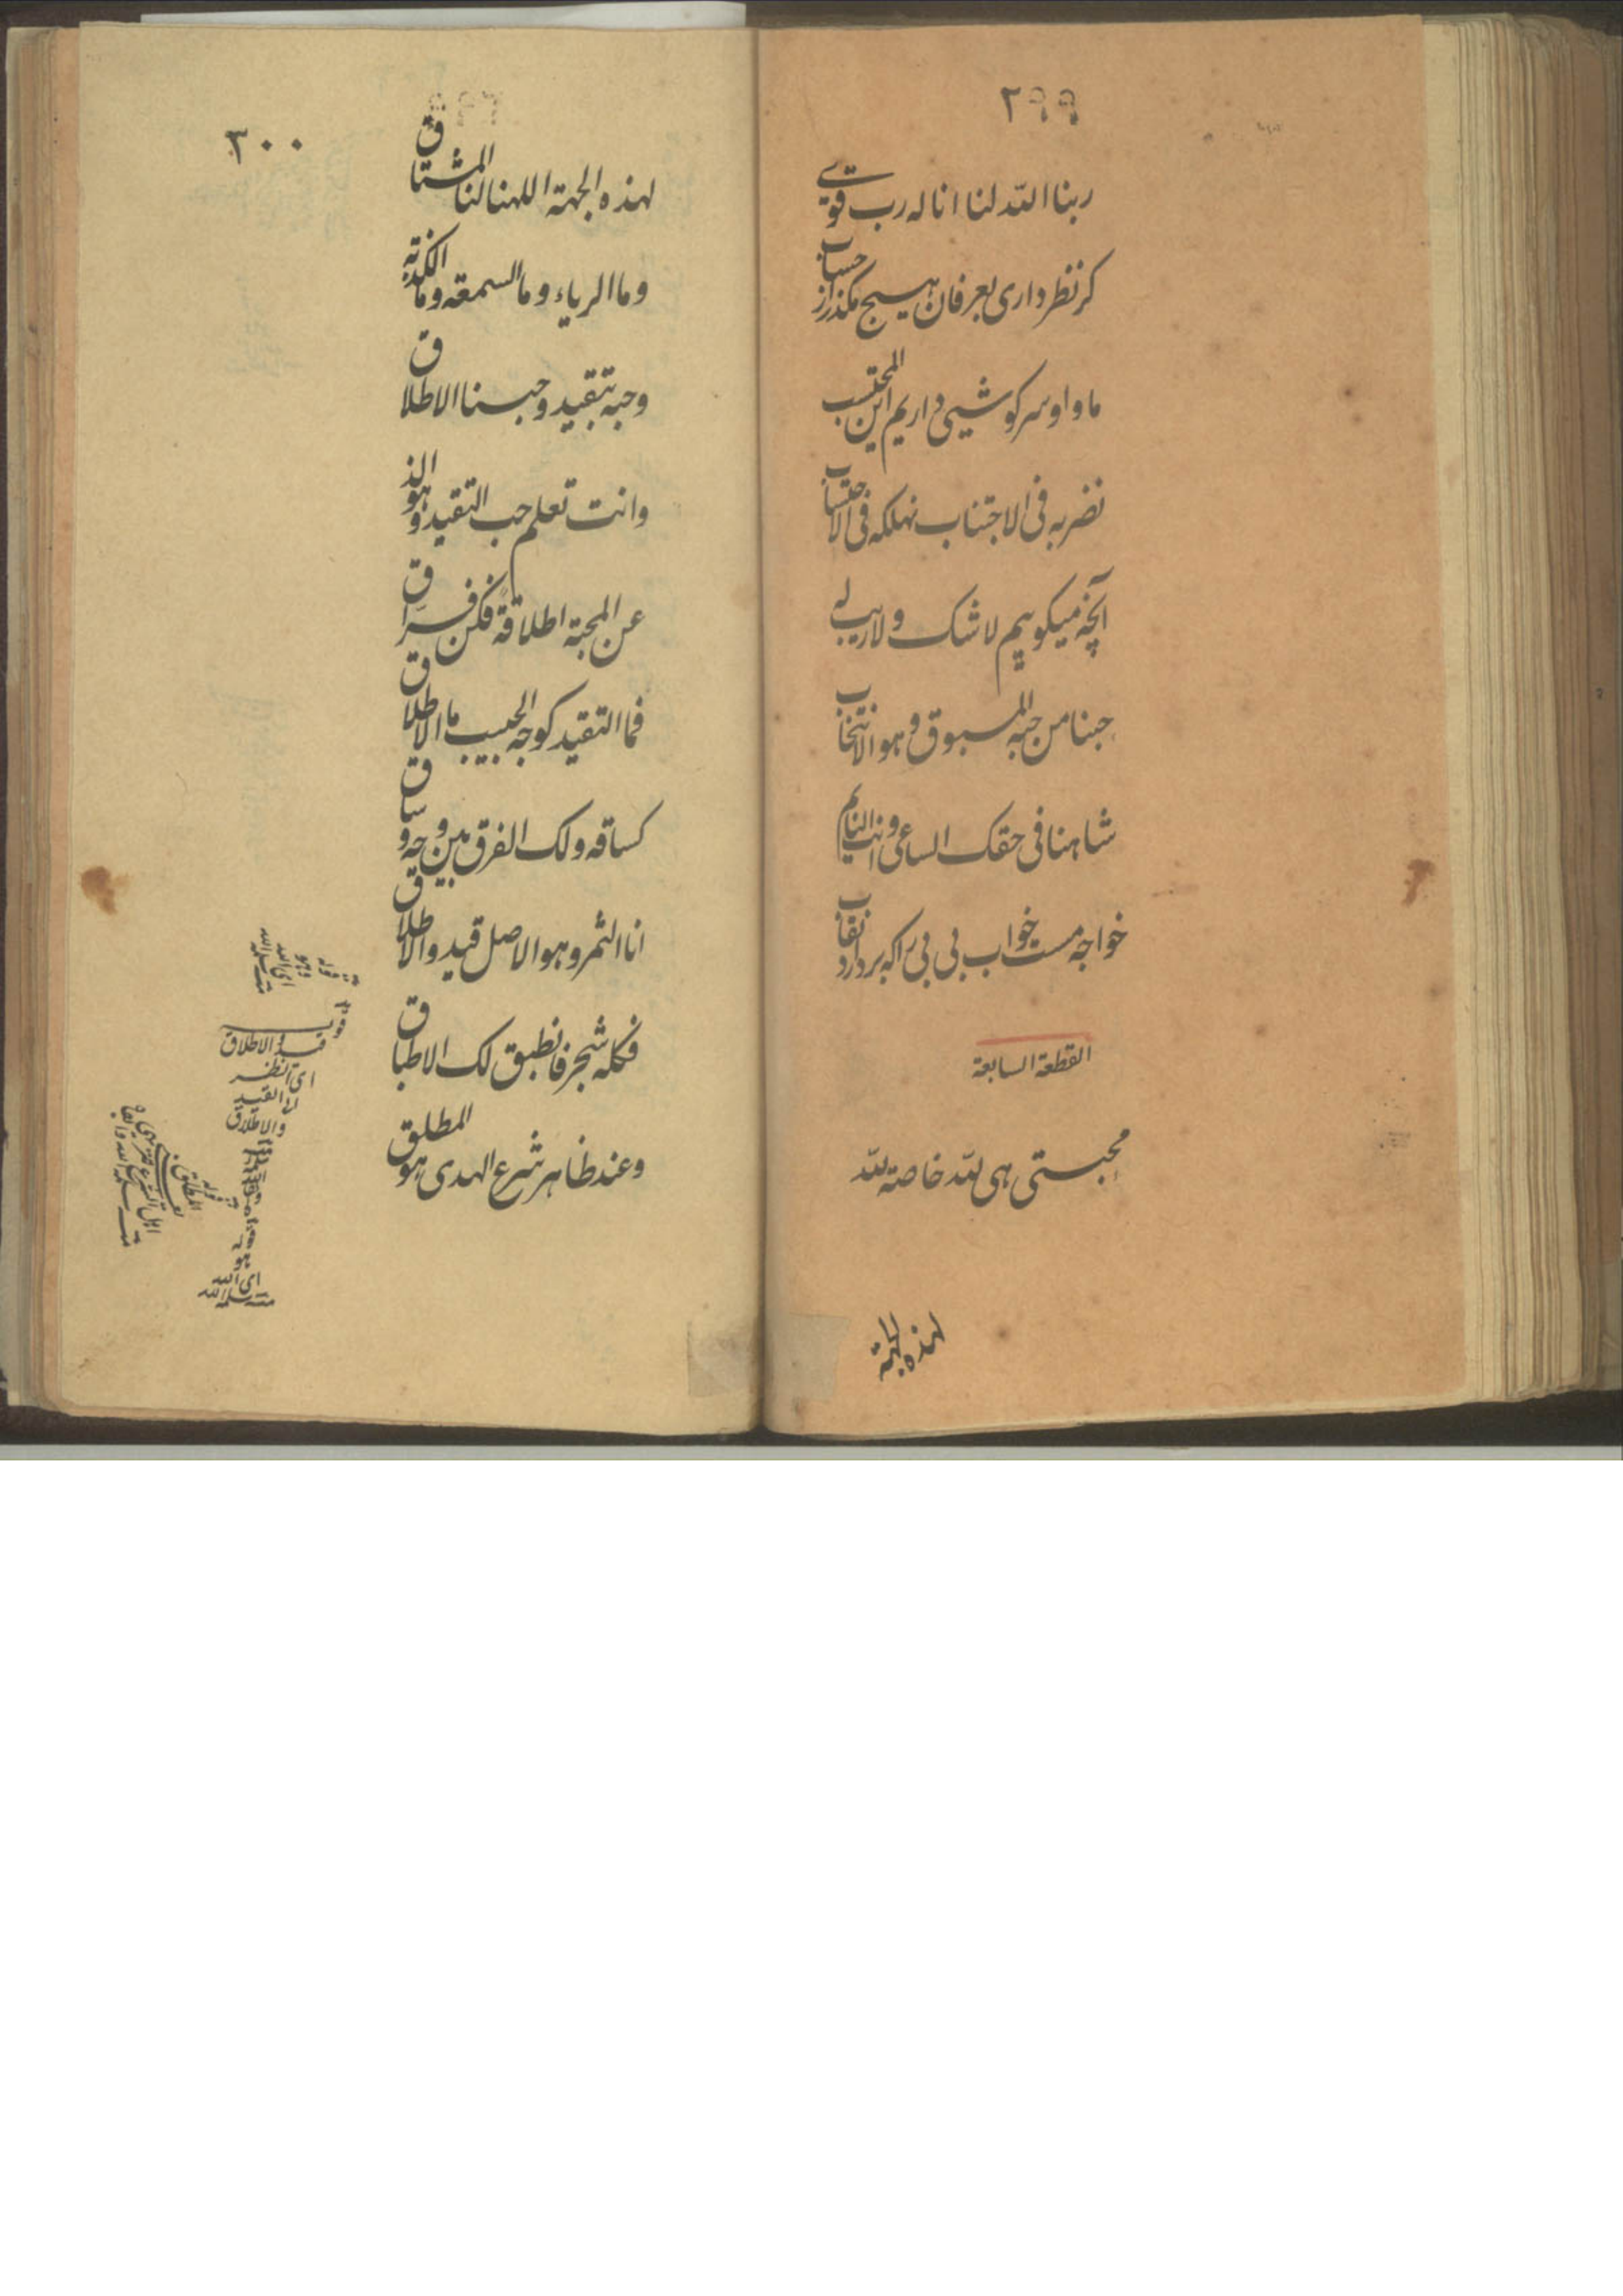 ٢٩٩
ربنا الله لنا انا له رب قوی
کر نظر داری بعرفان هیچ مکذر از حساب
ما و او سرکوشیی داریم این المحتسب
نضربه فی الاجتناب نهلکه فی الاحتساب
آنچه میکوییم لا شک و لا ریب له
حبنا من حبه المسبوق و هو الانتخاب
شاهنا فی حقک الساعی و انت النایم
خواجه مست خواب بی بی را که بردارد نقاب
القطعة السابعة
محبستی هی لله خاصة لله
لهذه الجهة
٣٠٠
لهذه الجهة اللهنا لنا المشتاق
وما الریاء وما السمعة وما الکذبة
وحبه بتقید وحبسنا الاطلاق
وانت تعلم حب التقید وهو الذ
عن المحبة اطلاقة فکن فراق
فما التقید کوجه الحبیب ما الاطلاق
کساقه ولک الفرق بین وجه و ساق
انا الثمر وهو الاصل قید والاطلاق
فکله شجر فانطبق لک الاطباق
وعند ظاهر شرع الهدی هو المطلق
قوله
وهو
ای الله
سلمه الله
قوله
قید والاطلاق
ای انظر
الی القید
والاطلاق
هو
ای الله
سلمه الله
قوله
المطلق